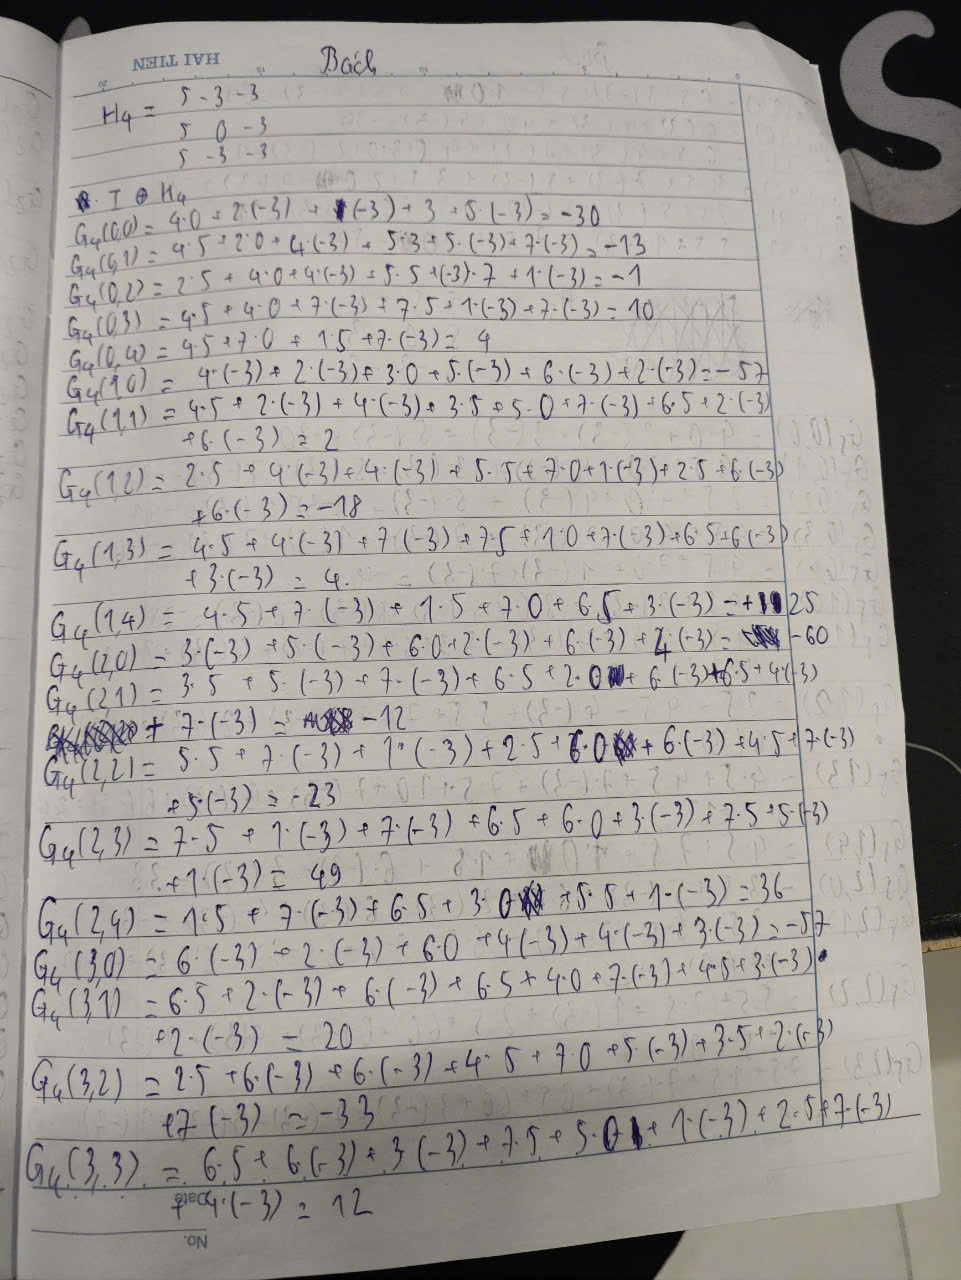 HAI TIEN
Bách
H4 = 5 -3 -3
5 0 -3
5 -3 -3
I ⊕ H4
G4(0,0) = 4.0 + 2.(-3) + (-3) + 3 + 5.(-3) = -30
G4(0,1) = 4.5 + 2.0 + 4.(-3) + 5.3 + 5.(-3) + 7.(-3) = -13
G4(0,2) = 2.5 + 4.0 + 4.(-3) + 5.5 + (-3).7 + 1.(-3) = -1
G4(0,3) = 4.5 + 4.0 + 7.(-3) + 7.5 + 1.(-3) + 7.(-3) = 10
G4(0,4) = 4.5 + 7.0 + 1.5 + 7.(-3) = 4
G4(1,0) = 4.(-3) + 2.(-3) + 3.0 + 5.(-3) + 6.(-3) + 2.(-3) = -57
G4(1,1) = 4.5 + 2.(-3) + 4.(-3) + 3.5 + 5.0 + 7.(-3) + 6.5 + 2.(-3)
+ 6.(-3) = 2
G4(1,2) = 2.5 + 4.(-3) + 4.(-3) + 5.5 + 7.0 + 1.(-3) + 2.5 + 6.(-3)
+ 6.(-3) = -18
G4(1,3) = 4.5 + 4.(-3) + 7.(-3) + 7.5 + 1.0 + 7.(-3) + 6.5 + 6.(-3)
+ 3.(-3) = 4.
G4(1,4) = 4.5 + 7.(-3) + 1.5 + 7.0 + 6.5 + 3.(-3) = + 25
G4(2,0) = 3.(-3) + 5.(-3) + 6.0 + 2.(-3) + 6.(-3) + 4.(-3) = -60
G4(2,1) = 3.5 + 5.(-3) + 7.(-3) + 6.5 + 2.0 + 6.(-3) + 6.5 + 4.(-3)
+ 7.(-3) = -12
G4(2,2) = 5.5 + 7.(-3) + 1.(-3) + 2.5 + 6.0 + 6.(-3) + 4.5 + 7.(-3)
+ 5.(-3) = -23
G4(2,3) = 7.5 + 1.(-3) + 7.(-3) + 6.5 + 6.0 + 3.(-3) + 7.5 + 5.(-3)
+ 1.(-3) = 49
G4(2,4) = 1.5 + 7.(-3) + 6.5 + 3.0 + 5.5 + 1.(-3) = 36
G4(3,0) = 6.(-3) + 2.(-3) + 6.0 + 4(-3) + 4.(-3) + 3.(-3) = -57
G4(3,1) = 6.5 + 2.(-3) + 6.(-3) + 6.5 + 4.0 + 7.(-3) + 4.5 + 3.(-3)
+ 2.(-3) = 20
G4(3,2) = 2.5 + 6.(-3) + 6.(-3) + 4.5 + 7.0 + 5.(-3) + 3.5 + 2.(-3)
+ 7.(-3) = -33
G4(3,3) = 6.5 + 6.(-3) + 3.(-3) + 7.5 + 5.0 + 1.(-3) + 2.5 + 7.(-3)
+ 4.(-3) = 12
Date
No.